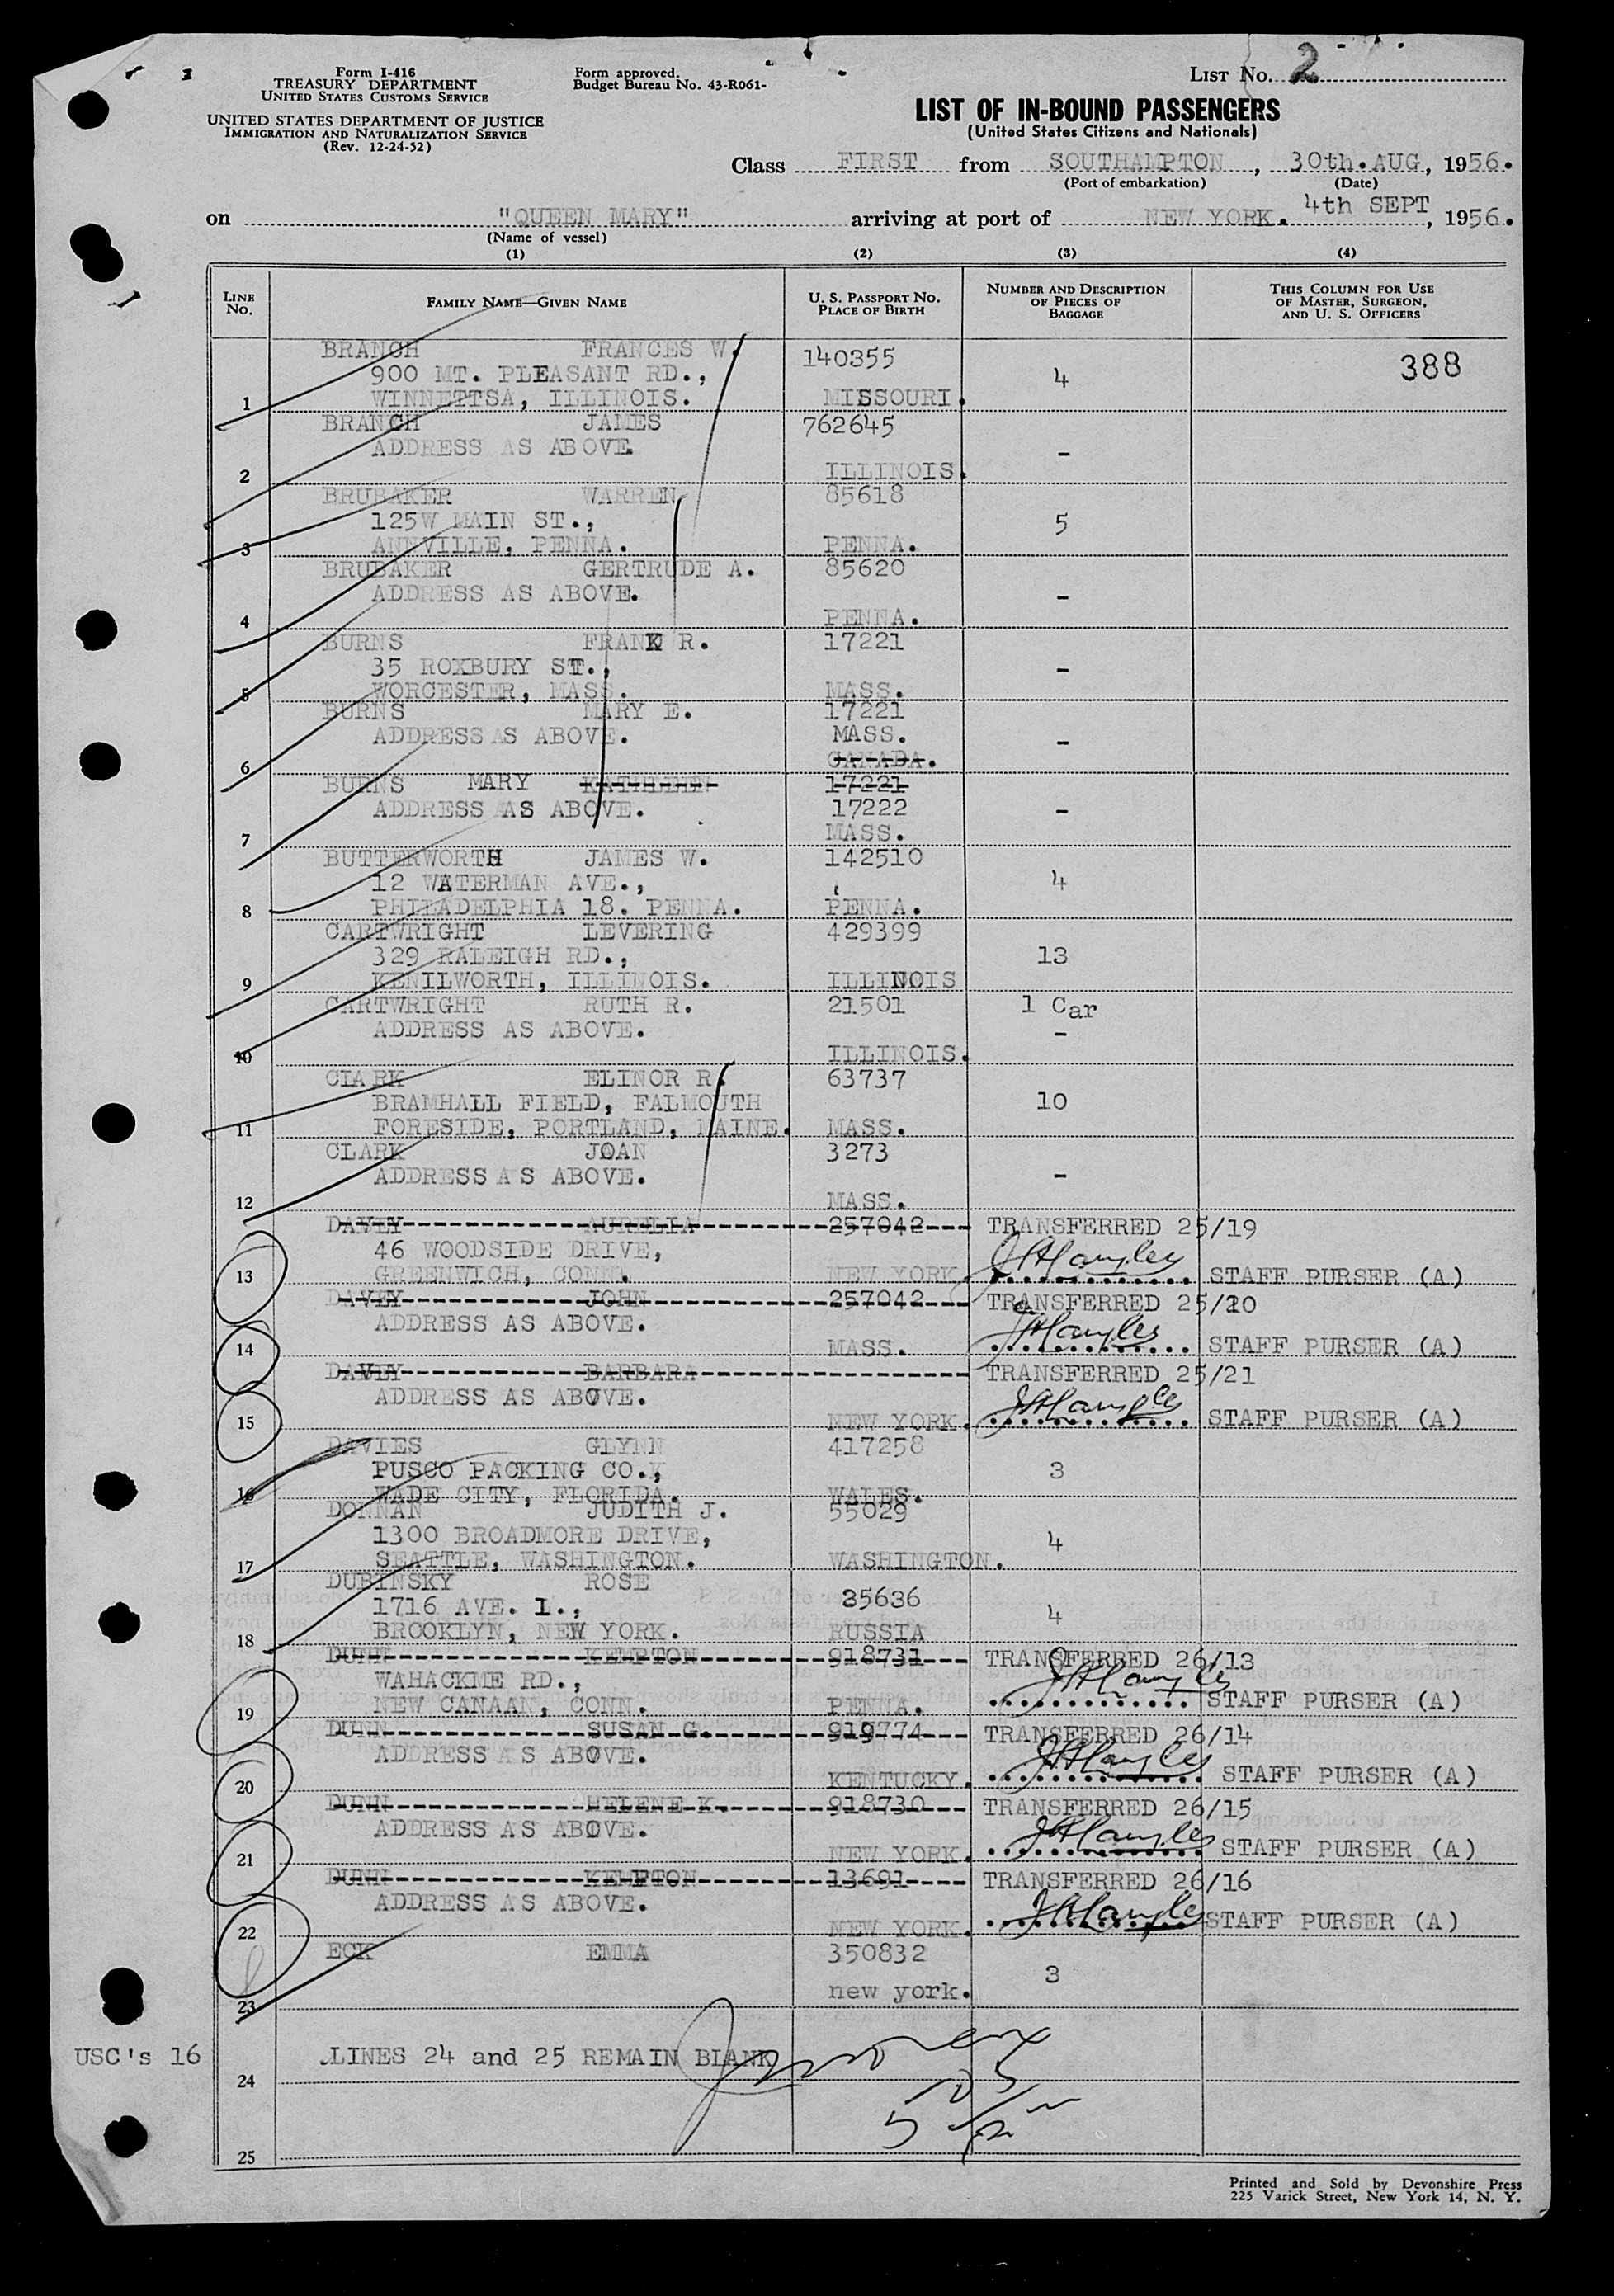 Form I-416
TREASURY DEPARTMENT
UNITED STATES CUSTOMS SERVICE
UNITED STATES DEPARTMENT OF JUSTICE
IMMIGRATION AND NATURALIZATION SERVICE
(Rev. 12-24-52)
Form approved.
Budget Bureau No. 43-R061-
LIST NO. 2
LIST OF IN-BOUND PASSENGERS
(United States Citizens and Nationals)
Class FIRST from SOUTHAMPTON, 30th.AUG, 1956.
(Port of embarkation) (Date)
on "QUEEN MARY" arriving at port of NEW YORK. 4th SEPT, 1956.
(Name of vessel)
(1) (2) (3) (4)
LINE NO. FAMILY NAME—GIVEN NAME U. S. PASSPORT NO. PLACE OF BIRTH NUMBER AND DESCRIPTION OF PIECES OF BAGGAGE THIS COLUMN FOR USE OF MASTER, SURGEON, AND U. S. OFFICERS
BRANCH FRANCES W. 140355 388
900 MT. PLEASANT RD., 4
1 WINNETTSA, ILLINOIS. MISSOURI.
BRANCH JAMES 762645
ADDRESS AS ABOVE. -
2 ILLINOIS.
BRUBAKER WARREN 85618
125W MAIN ST., 5
3 ANNVILLE, PENNA. PENNA.
BRUBAKER GERTRUDE A. 85620
ADDRESS AS ABOVE. -
4 PENNA.
BURNS FRANK R. 17221
35 ROXBURY ST., -
5 WORCESTER, MASS. MASS.
BURNS MARY E. 17221
ADDRESS AS ABOVE. MASS. -
6 CANADA.
BURNS MARY KATHLEEN 17221
ADDRESS AS ABOVE. 17222 -
7 MASS.
BUTTERWORTH JAMES W. 142510
12 WATERMAN AVE., 4
8 PHILADELPHIA 18. PENNA. PENNA.
CARTWRIGHT LEVERING 429399
329 RALEIGH RD., 13
9 KENILWORTH, ILLINOIS. ILLINOIS
CARTWRIGHT RUTH R. 21501 1 Car
ADDRESS AS ABOVE. -
10 ILLINOIS.
CLARK ELINOR R. 63737
BRAMHALL FIELD, FALMOUTH 10
11 FORESIDE, PORTLAND, MAINE. MASS.
CLARK JOAN 3273
ADDRESS AS ABOVE. -
12 MASS.
DAVEY AURELIA 257042 TRANSFERRED 25/19
46 WOODSIDE DRIVE,
13 GREENWICH, CONN. NEW YORK. STAFF PURSER (A)
DAVEY JOHN 257042 TRANSFERRED 25/20
ADDRESS AS ABOVE.
14 MASS. STAFF PURSER (A)
DAVEY BARBARA TRANSFERRED 25/21
ADDRESS AS ABOVE.
15 NEW YORK. STAFF PURSER (A)
DAVIES GLYNN 417258
PUSCO PACKING CO., 3
16 WADE CITY, FLORIDA. WALES.
DONNAN JUDITH J. 55029
1300 BROADMORE DRIVE, 4
17 SEATTLE, WASHINGTON. WASHINGTON.
DUBINSKY ROSE 35636
1716 AVE. I., 4
18 BROOKLYN, NEW YORK. RUSSIA
DUNN KEMPTON 918731 TRANSFERRED 26/13
WAHACKME RD.,
19 NEW CANAAN, CONN. PENNA. STAFF PURSER (A)
DUNN SUSAN G. 919774 TRANSFERRED 26/14
ADDRESS AS ABOVE.
20 KENTUCKY. STAFF PURSER (A)
DUNN HELENE K. 918730 TRANSFERRED 26/15
ADDRESS AS ABOVE.
21 NEW YORK. STAFF PURSER (A)
DUNN KEMPTON 13691 TRANSFERRED 26/16
ADDRESS AS ABOVE.
22 NEW YORK. STAFF PURSER (A)
ECK EMMA 350832
3
23 new york.
USC's 16 LINES 24 and 25 REMAIN BLANK
24
25
Printed and Sold by Devonshire Press
225 Varick Street, New York 14, N. Y.